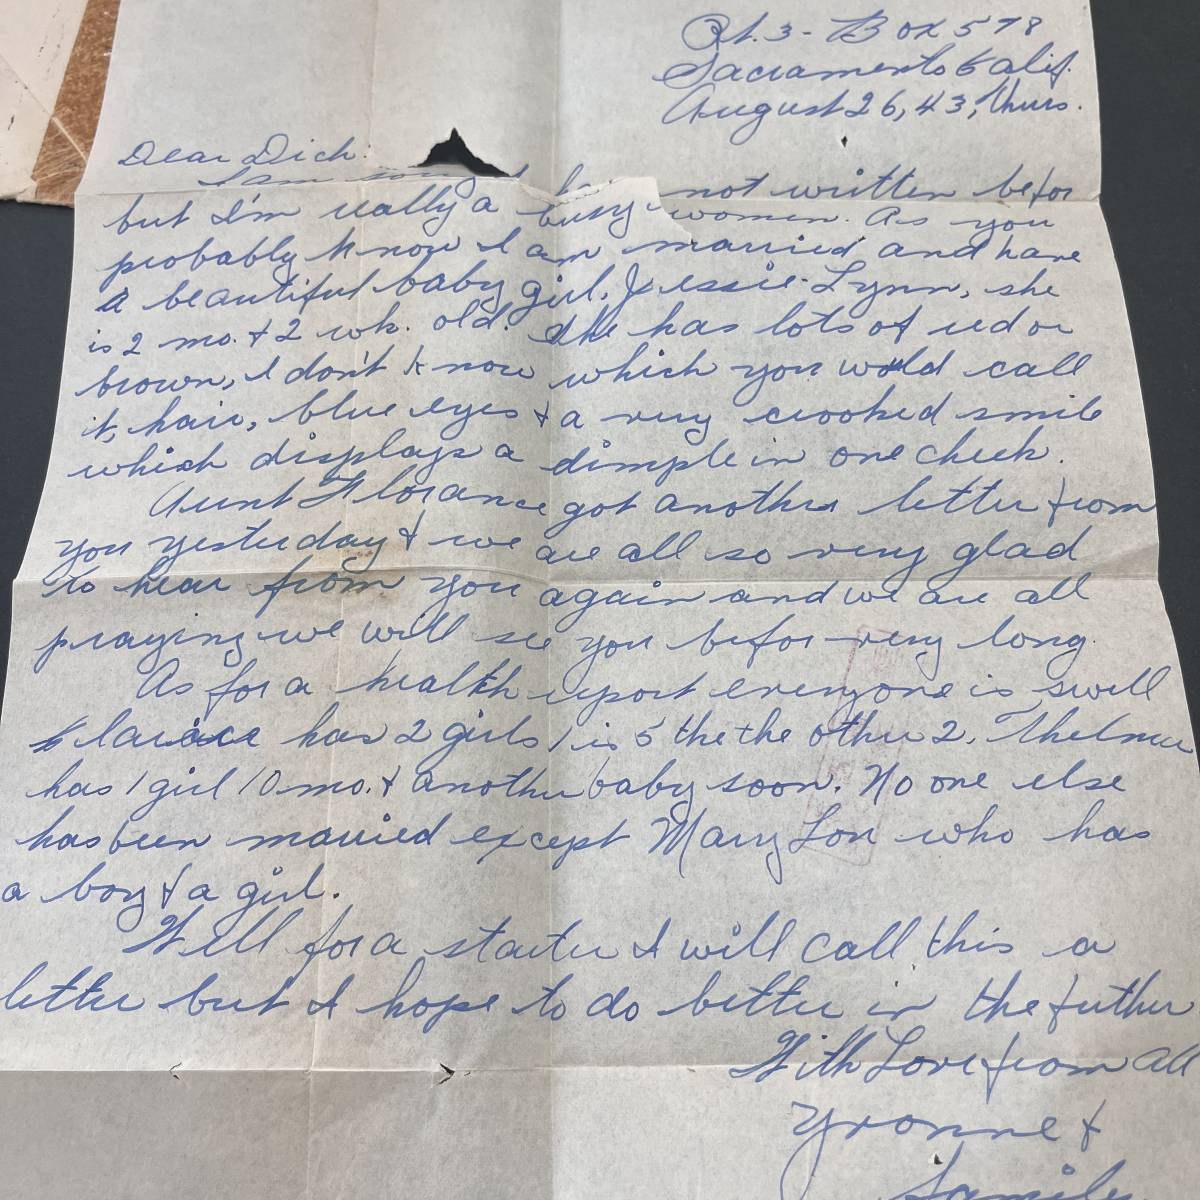 Rt. 3 - Box 578
Sacramento Calif.
August 26, 43, Thurs.
Dear Dick
I am sorry I ha not written befor
but I'm really a busy women. As you
probably know I am married and have
a beautiful baby girl, Jessie-Lynn, she
is 2 mo. & 2 wk. old. She has lots of red or
brown, I don't know which you would call
it, hair, blue eyes & a very crooked smile
which displays a dimple in one cheek.
Aunt Florance got another letter from
you yesterday & we are all so very glad
to hear from you again and we are all
praying we will see you befor very long.
As for a health report everyone is swell
has 2 girls 1 is 5 the the other 2. Thelma
has 1 girl 10 mo. & another baby soon. No one else
has been married except Mary Lou who has
a boy & a girl.
Well for a starter I will call this a
letter but I hope to do better in the futher
With Love from all
Yvonne &
Family